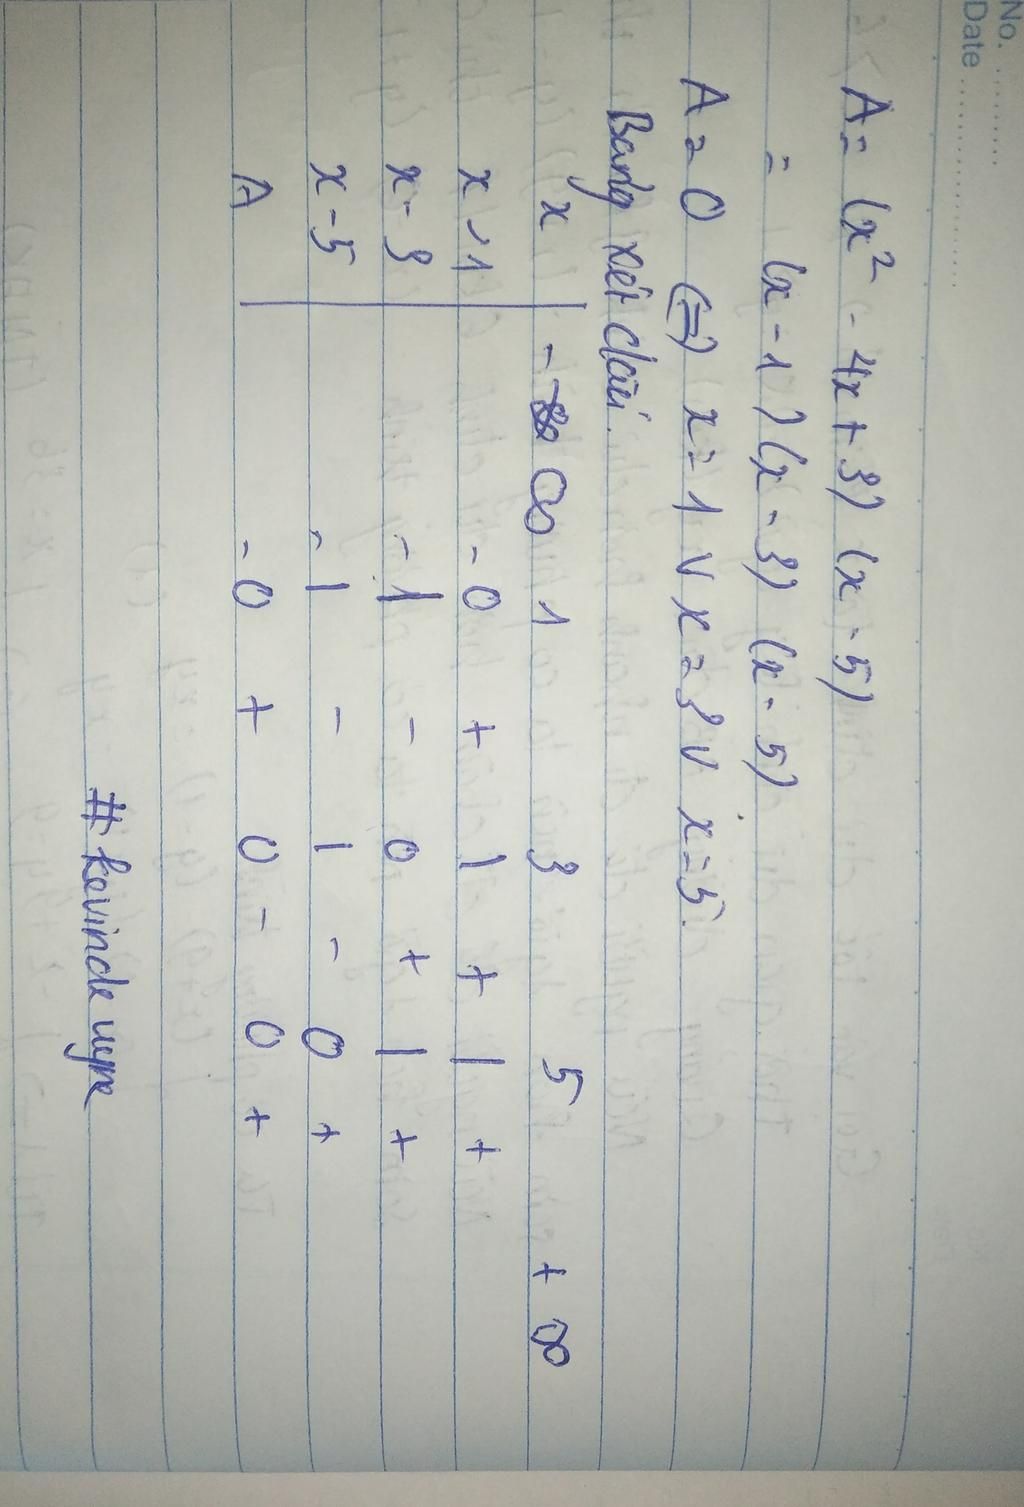 No. ..........
Date ..............................
A = (x² - 4x + 3) (x - 5)
= (x - 1) (x - 3) (x - 5)
A = 0 (=) x = 1 ∨ x = 3 ∨ x = 5.
Bảng xét dấu.
x -∞ 1 3 5 + ∞
x - 1 - 0 + | + | +
x - 3 - | - 0 + | +
x - 5 - | - | - 0 +
A - 0 + 0 - 0 +